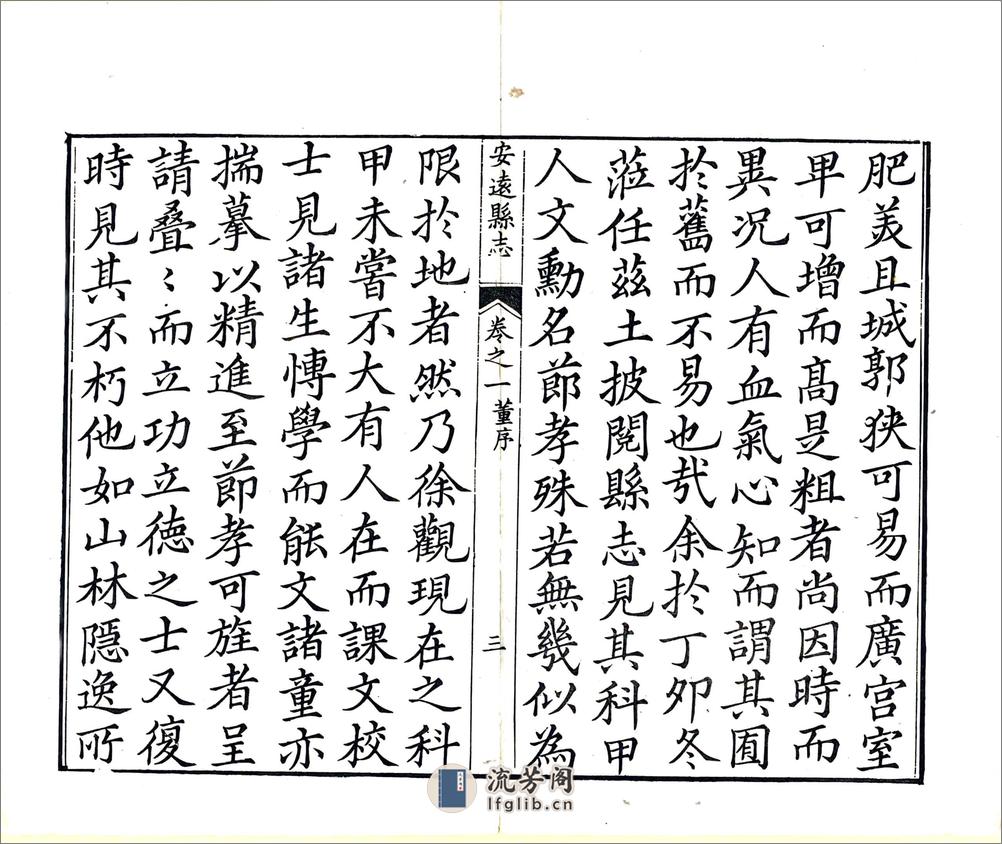 肥美且城郭狹可易而廣宮室
卑可增而髙是粗者尚因時而
異况人有血氣心知而謂其囿
於舊而不易也㢤余於丁卯冬
蒞任茲土披閱縣志見其科甲
人文勳名節孝殊若無幾似為
安遠縣志
卷之一 董序
三
限於地者然乃徐觀現在之科
甲未嘗不大有人在而課文校
士見諸生博學而能文諸童亦
揣摹以精進至節孝可旌者呈
請叠〻而立功立德之士又復
時見其不朽他如山林隱逸所
流芳阁
lfglib.cn